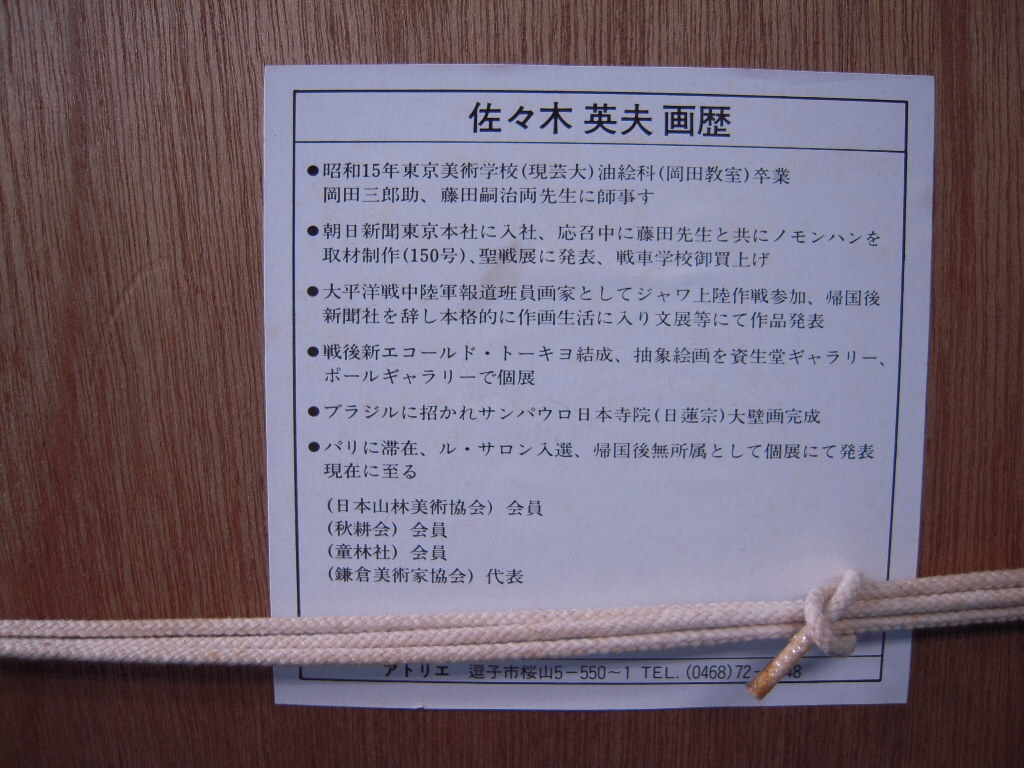 佐々木 英夫 画歴
●昭和15年東京美術学校(現芸大)油絵科(岡田教室)卒業
岡田三郎助、藤田嗣治両先生に師事す
●朝日新聞東京本社に入社、応召中に藤田先生と共にノモンハンを
取材制作(150号)、聖戦展に発表、戦車学校御買上げ
●大平洋戦中陸軍報道班員画家としてジャワ上陸作戦参加、帰国後
新聞社を辞し本格的に作画生活に入り文展等にて作品発表
●戦後新エコールド・トーキヨ結成、抽象絵画を資生堂ギャラリー、
ポールギャラリーで個展
●ブラジルに招かれサンパウロ日本寺院(日蓮宗)大壁画完成
●パリに滞在、ル・サロン入選、帰国後無所属として個展にて発表
現在に至る
(日本山林美術協会) 会員
(秋耕会) 会員
(童林社) 会員
(鎌倉美術家協会) 代表
アトリエ 逗子市桜山5-550~1 TEL. (0468)72-